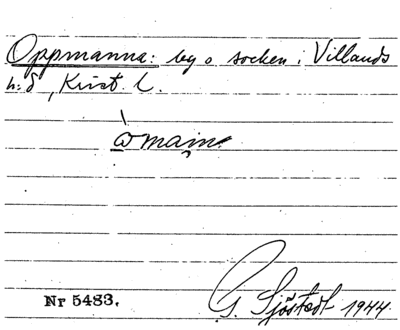 Oppmanna: by o socken i Villands
h:d, Krist. L.
Nr 5483.
G. Sjöstedt 1944.